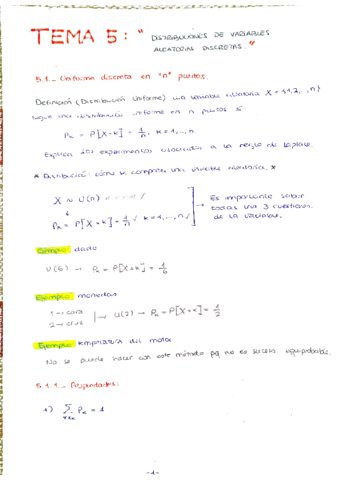 TEMA 5: " DISTRIBUCIONES DE VARIABLES
ALEATORIAS DISCRETAS "
5.1.- Uniforme discreta en "n" puntos.
Definición (Distribución Uniforme) una variable aleatoria X = {1,2,..,n}
sigue una distribución uniforme en n puntos si
Pκ = P[X=k] = 1/n , k=1,..,n.
Explica los experimentos asociados a la regla de Laplace.
* Distribución: cómo se comporta una variable aleatoria. *
X ~ U(n)
↓
Pκ = P[X=k] = 1/n , k=1,...,n
Es importante saber
todas las 3 cuestiones
de la variable.
Ejemplo dado
U(6) → Pκ = P[X=k] = 1/6
Ejemplo monedas
1 → cara
2 → cruz
→ U(2) → Pκ = P[X=k] = 1/2
Ejemplo temperatura del motor
No se puede hacer con este método pq no es suceso equiprobable.
5.1.1.- Propiedades:
1) Σ Pκ = 1
-1-